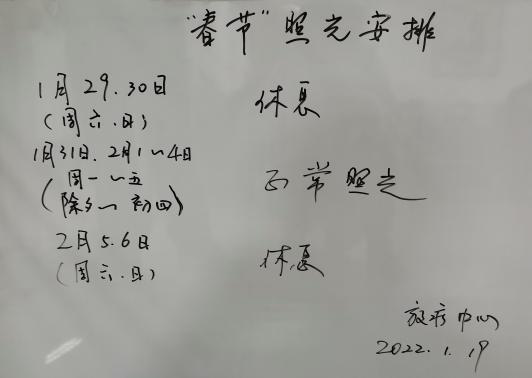 “春节”照光安排
1月29.30日 休息
(周六.日)
1月31日.2月1~4日
(周一~五 正常照光
(除夕~初四)
2月5.6日 休息
(周六.日)
放疗中心
2022.1.19